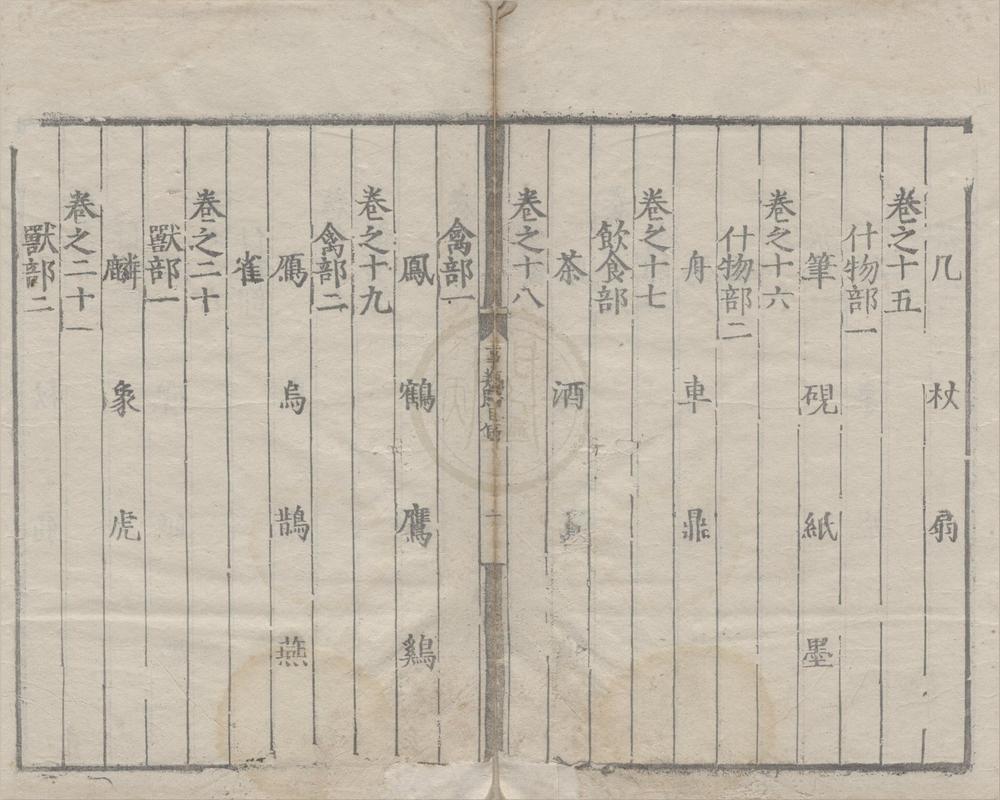 几 杖 扇
卷之十五
什物部一
筆 硯 紙 墨
卷之十六
什物部二
舟 車 鼎
卷之十七
飲食部
茶 酒
卷之十八
事類賦目錄
二
禽部一
鳳 鶴 鷹 鷄
卷之十九
禽部二
鴈 烏 鵲 燕
雀
卷之二十
獸部一
麟 象 虎
卷之二十一
獸部二